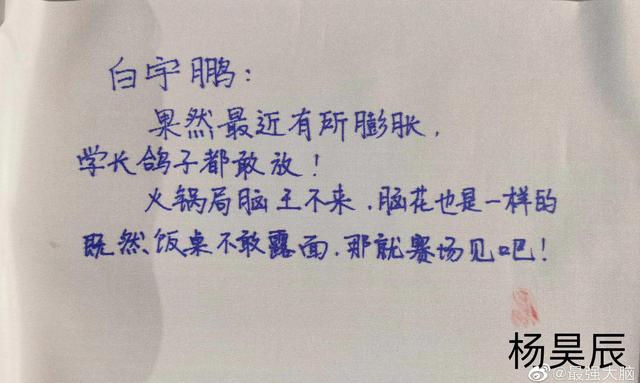 白宇鹏：
果然最近有所膨胀，
学长鸽子都敢放！
火锅局脑王不来，脑花也是一样的
既然饭桌不敢露面，那就赛场见吧！
杨昊辰
@最强大脑